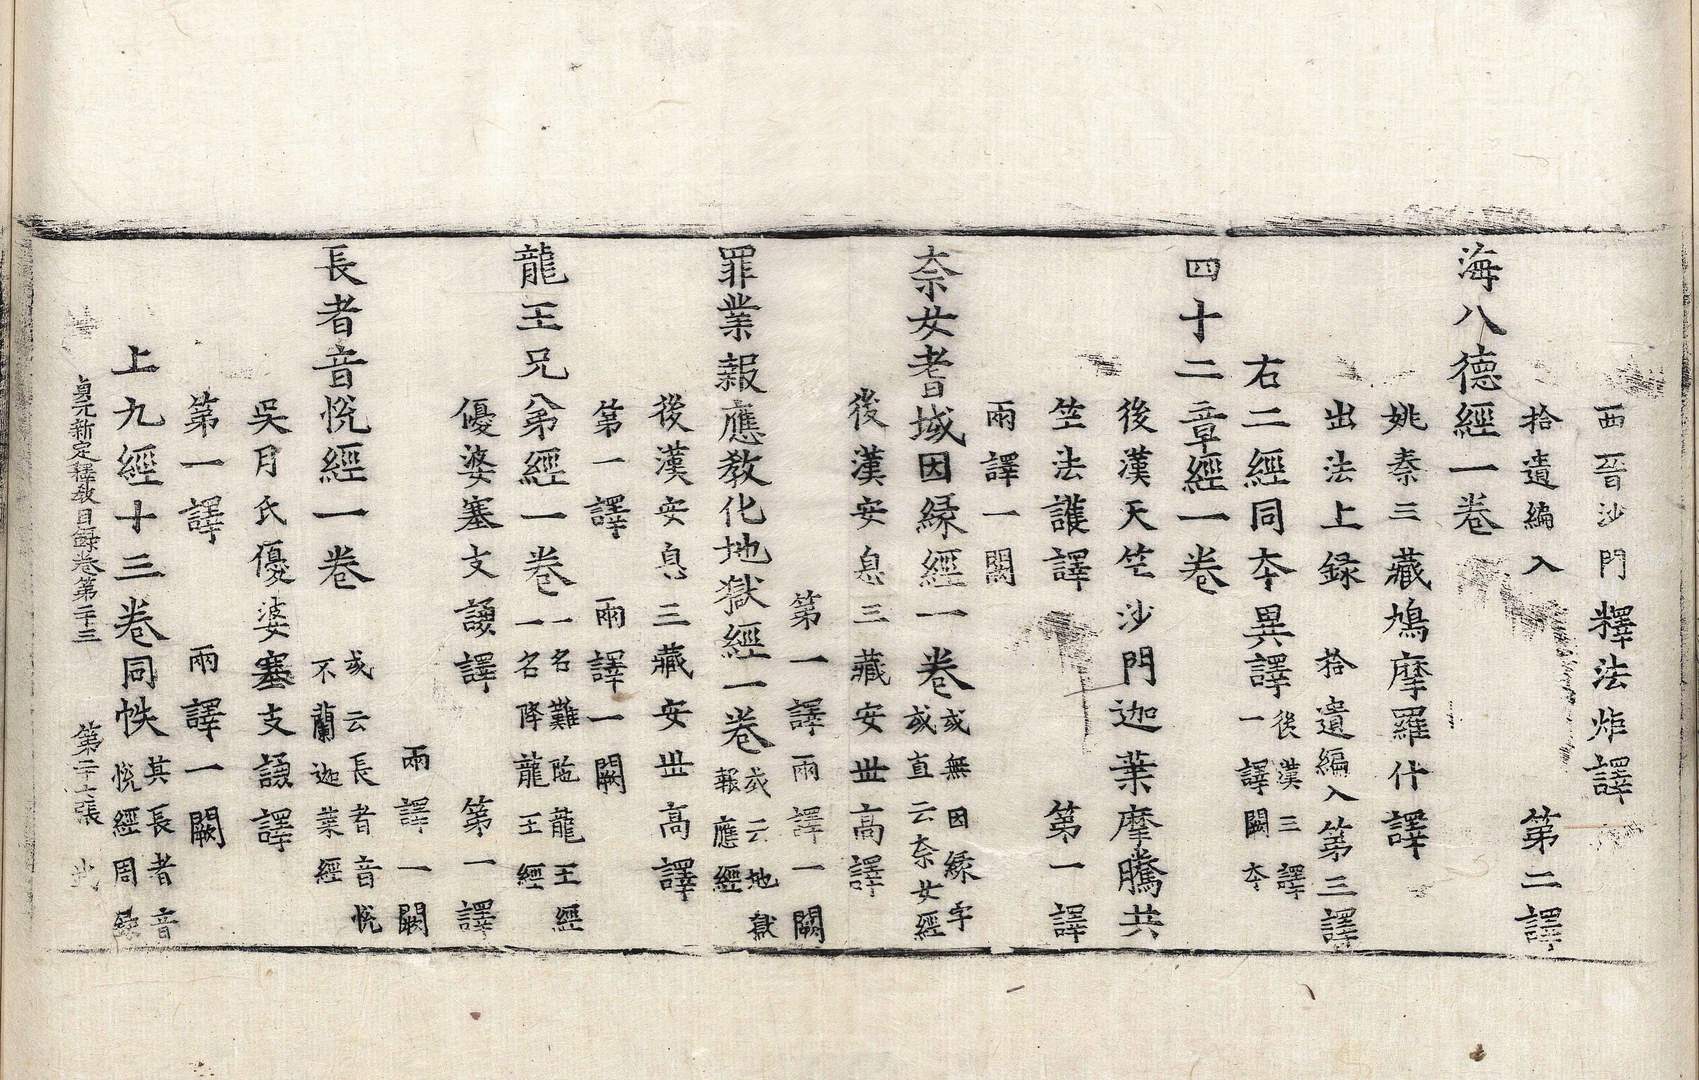 西晉沙門釋法炬譯
拾遺編入 第二譯
海八德經一卷
姚秦三藏鳩摩羅什譯
出法上録 拾遺編入第三譯
右二經同夲異譯 後漢三譯
一譯闕夲
四十二章經一卷
後漢天竺沙門迦葉摩騰共
竺法護譯 第一譯
兩譯一闕
柰女耆域因緣經一卷 或無因緣字
或直云柰女經
後漢安息三藏安世高譯
第一譯 兩譯一闕
罪業報應敎化地獄經一卷 或云地獄
報應經
後漢安息三藏安世高譯
第一譯 兩譯一闕
龍王兄弟經一卷 一名難陁龍王經
一名降龍王經
優婆塞支謙譯 第一譯
兩譯一闕
長者音悅經一卷 或云長者音悅
不蘭迦葉經
吳月氏優婆塞支謙譯
第一譯 兩譯一闕
上九經十三卷同帙 其長者音
悅經周録
貞元新定釋敎目録卷第二十三 第二十七張